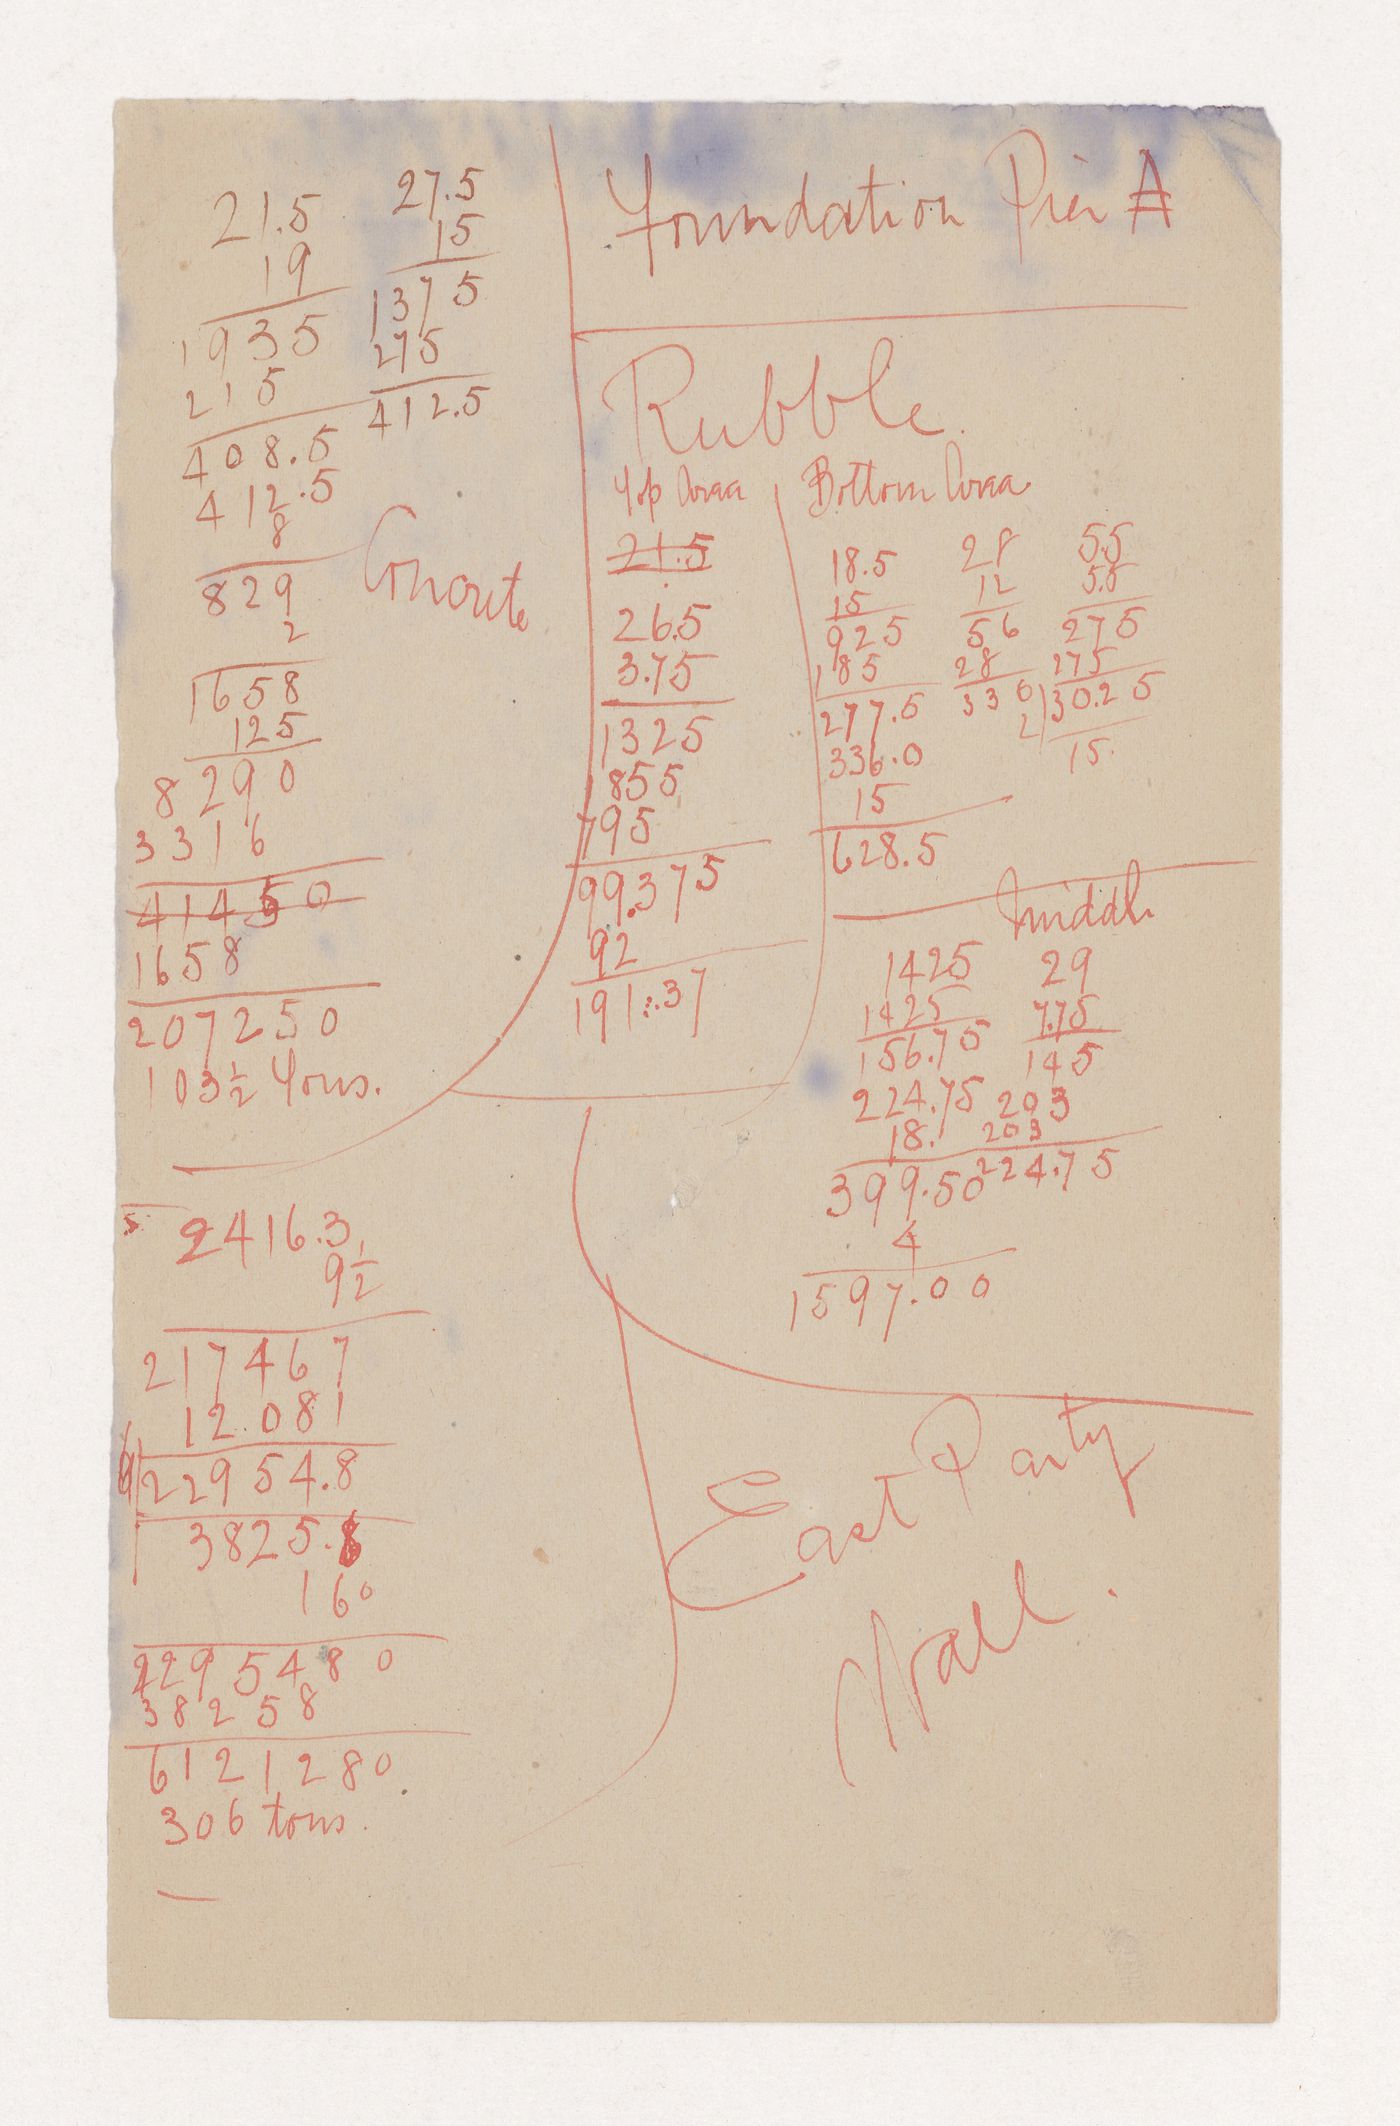 Foundation Pier A
21.5
19
1935
215
408.5
412.5
8
829
2
1658
125
8290
3316
41450
1658
207250
103½ Tons.
27.5
15
1375
275
412.5
Concrete
Rubble
Top Area
21.5
26.5
3.75
1325
1855
795
99.375
92
191.37
Bottom Area
18.5
15
925
185
277.5
336.0
15
628.5
28
12
56
28
336
5.5
5.5
275
275
2|30.25
15.
Middle
1425
1425
156.75
224.75
18.
399.50
4
1597.00
29
7.75
145
203
203
224.75
2416.3
9½
217467
12081
6|22954.8
3825.8
160
2295480
38258
6121280
306 tons.
East Party
Wall.